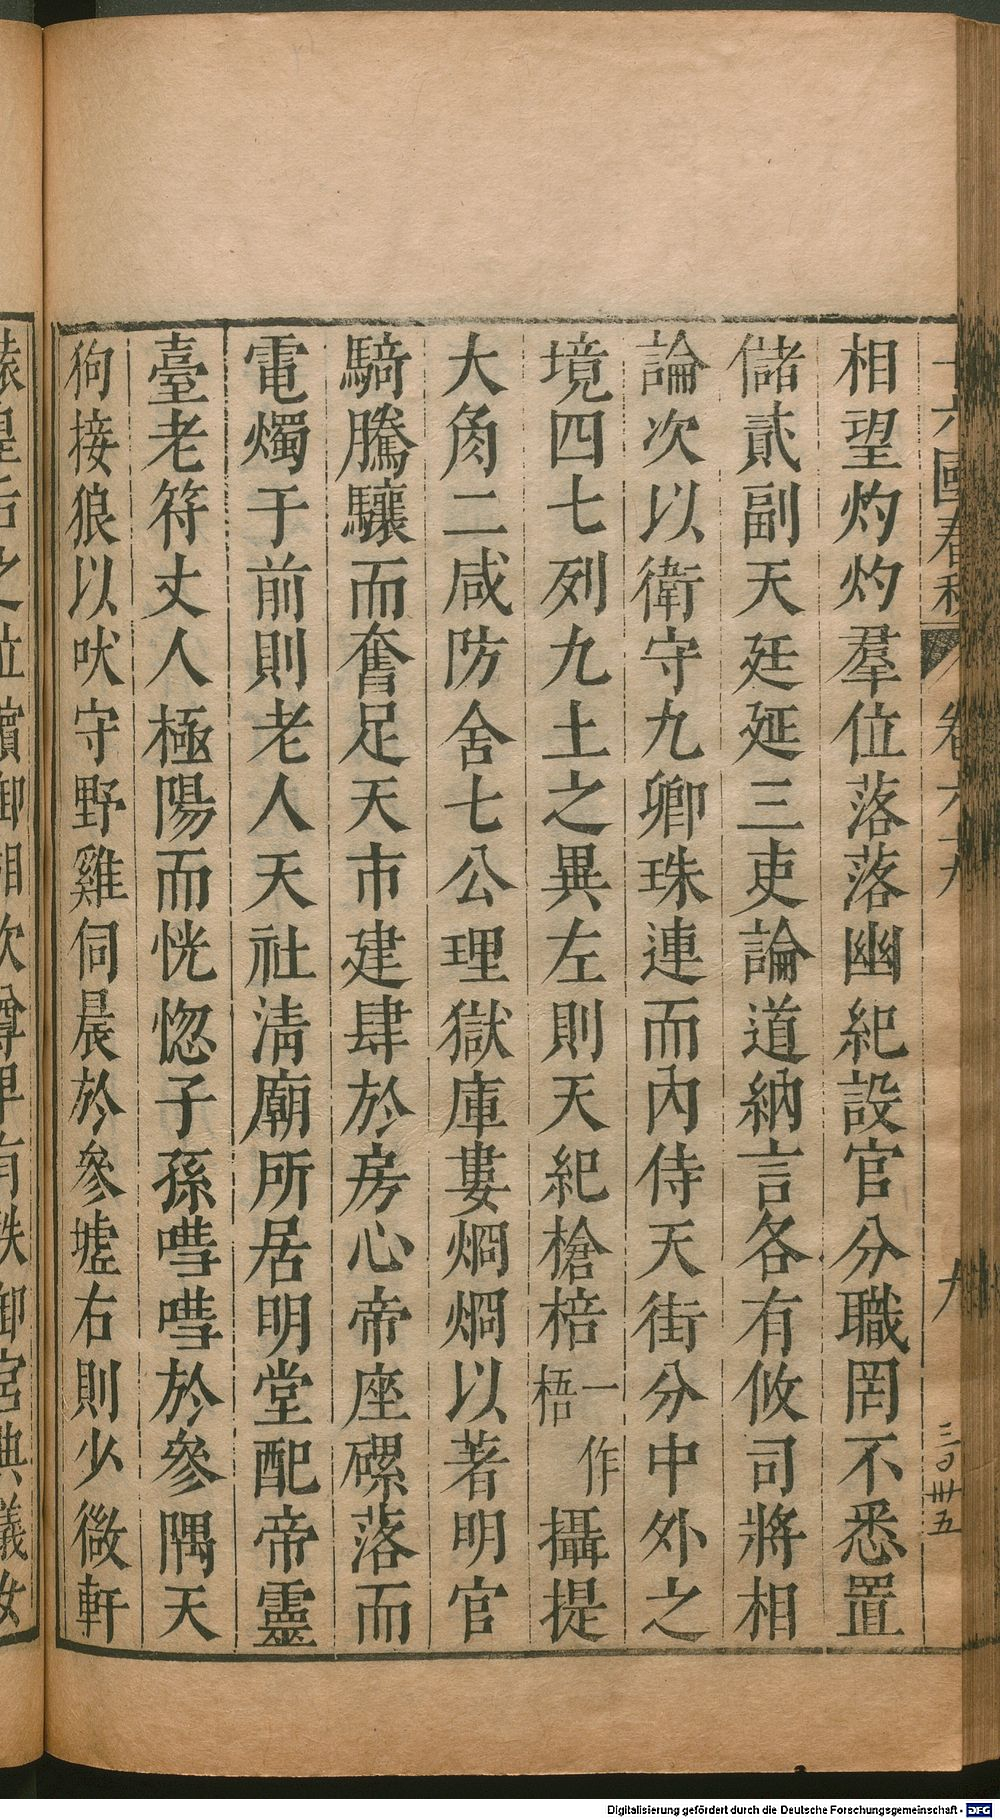 十六國春秋 卷六十九 九 三百卅五
相望灼灼羣位落落幽紀設官分職罔不悉置
儲貳副天廷延三吏論道納言各有攸司將相
論次以衛守九卿珠連而內侍天街分中外之
境四七列九土之異左則天紀槍棓一作梧攝提
大角二咸防舍七公理獄庫婁烱烱以著明官
騎騰驤而奮足天市建肆於房心帝座磥落而
電燭于前則老人天社淸廟所居明堂配帝靈
臺老符丈人極陽而恍惚子孫嘒嘒於參隅天
狗接狼以吠守野雞伺晨於參墟右則少微軒
轅皇后之位嬪御相次尊卑有秩御宮典儀女
Digitalisierung gefördert durch die Deutsche Forschungsgemeinschaft - DFG